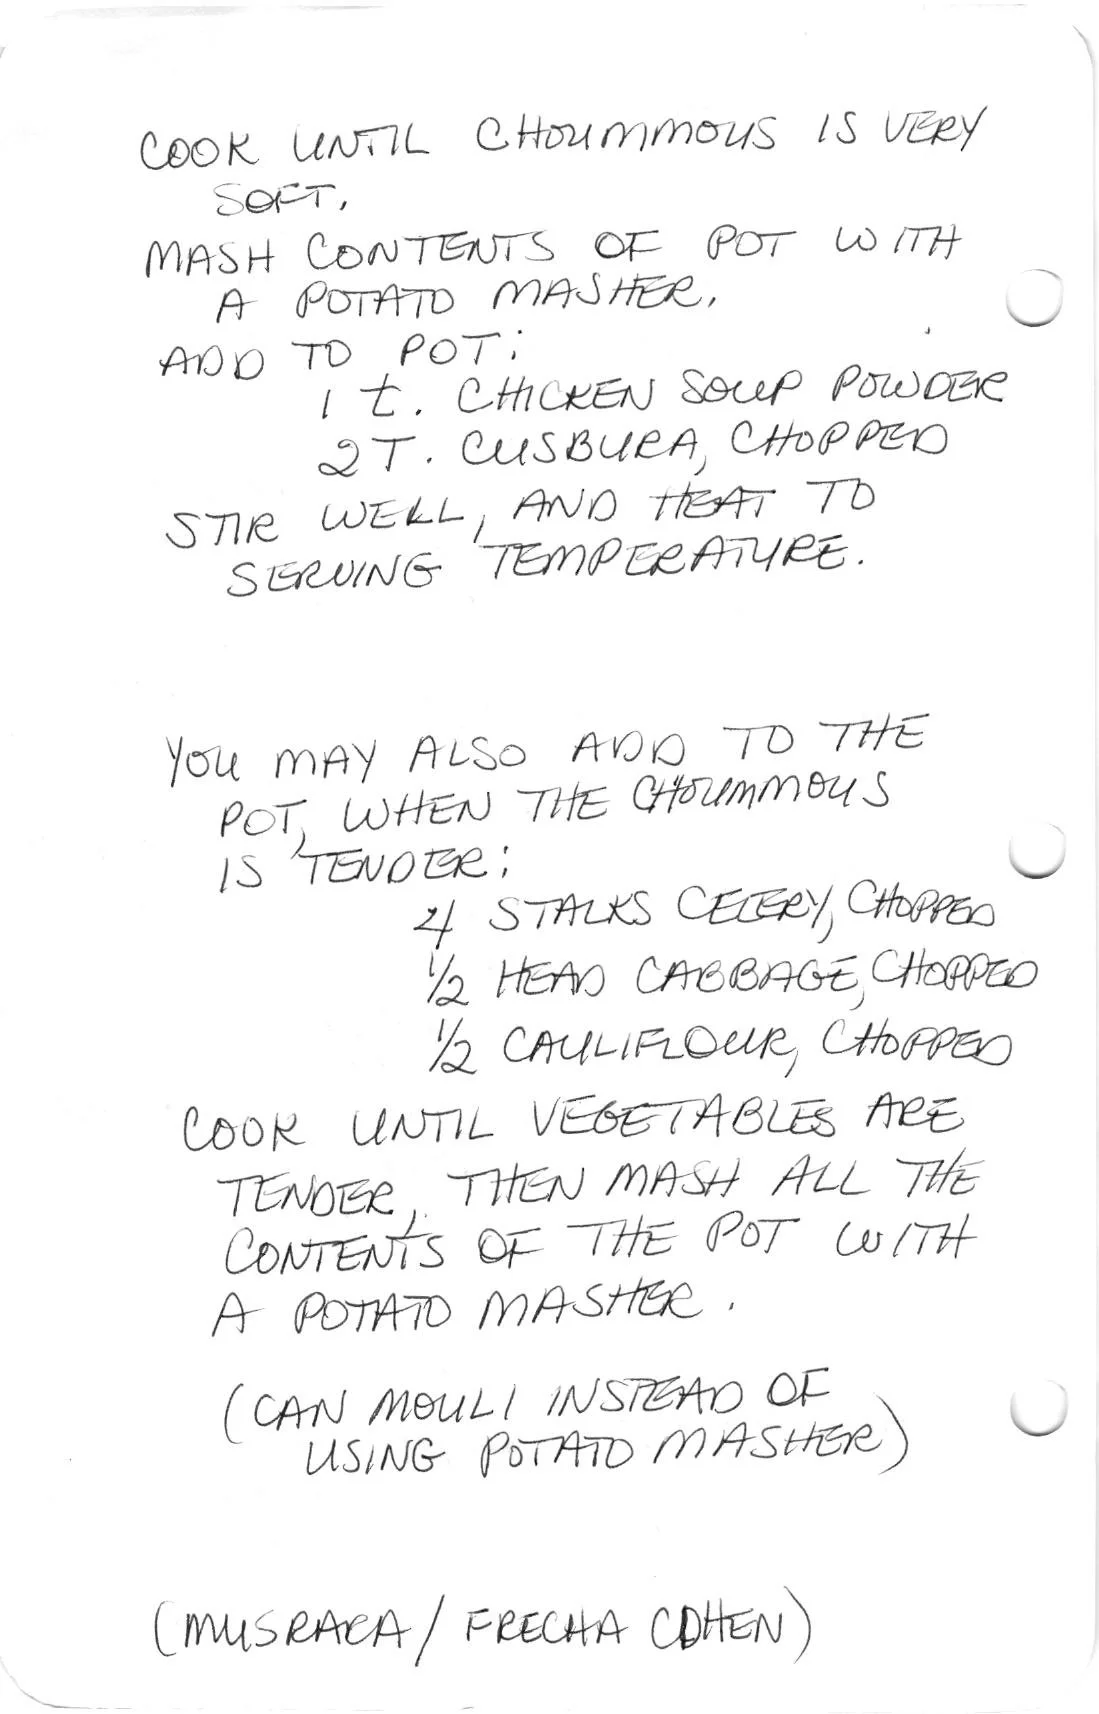 COOK UNTIL CHOUMMOUS IS VERY
SOFT.
MASH CONTENTS OF POT WITH
A POTATO MASHER.
ADD TO POT:
1 t. CHICKEN SOUP POWDER
2 T. CUSBURA, CHOPPED
STIR WELL, AND HEAT TO
SERVING TEMPERATURE.
YOU MAY ALSO ADD TO THE
POT, WHEN THE CHOUMMOUS
IS TENDER:
4 STALKS CELERY, CHOPPED
1/2 HEAD CABBAGE, CHOPPED
1/2 CAULIFLOUR, CHOPPED
COOK UNTIL VEGETABLES ARE
TENDER, THEN MASH ALL THE
CONTENTS OF THE POT WITH
A POTATO MASHER.
(CAN MOULI INSTEAD OF
USING POTATO MASHER)
(MUSRARA / FRECHA COHEN)